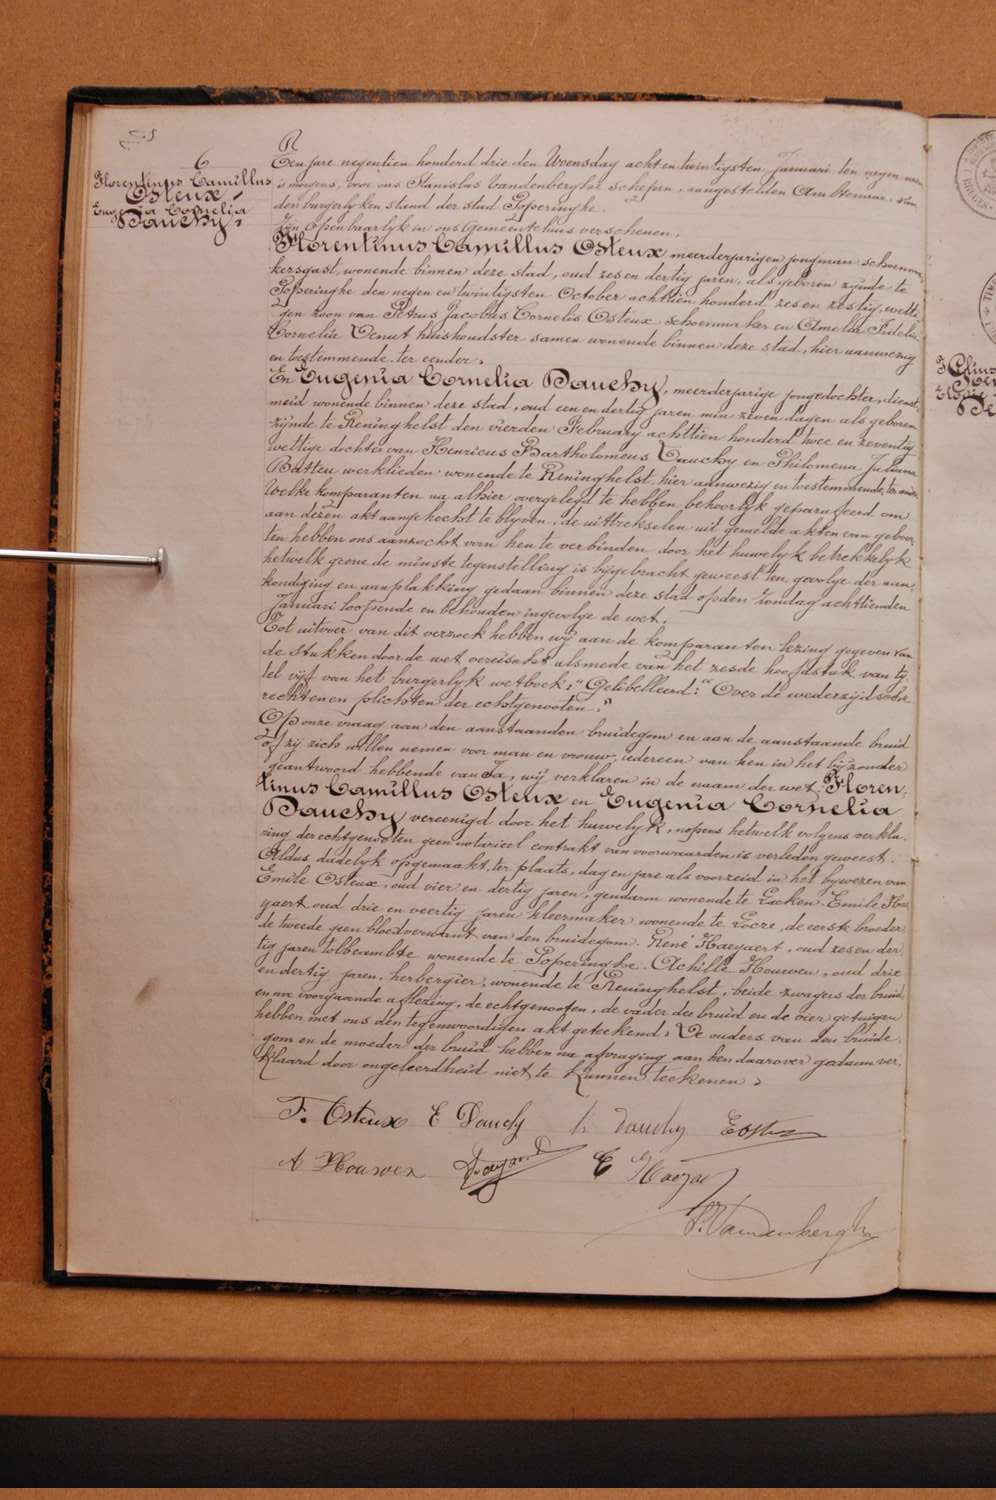 6
Florentinus Camillus
Osteux &
Eugenia Cornelia
Dauchy
Een jare negentien honderd drie den Woensdag acht en twintigsten Januari ten negen uren
's morgens, voor ons Stanislas Vandenberghe Schepen, aangestelden Ambtenaar van
den burgerlyken stand der stad Poperinghe.
Zyn openbaarlyk in ons Gemeentehuis verschenen.
Florentinus Camillus Osteux meerderjarigen jongman schoenma-
kersgast, wonende binnen deze stad, oud zes en dertig jaren, als geboren zynde te
Poperinghe den negen en twintigsten October achttien honderd zes en zestig, wetti-
gen zoon van Petrus Jacobus Cornelis Osteux schoenmaker en Amelia Fidelia
Cornelia Venut huishoudster samen wonende binnen deze stad, hier aanwezig
en toestemmende ter eender.
En Eugenia Cornelia Dauchy, meerderjarige jongedochter, dienst-
meid wonende binnen deze stad, oud een en dertig jaren min zeven dagen als geboren
zynde te Reninghelst den vierden February achttien honderd twee en zeventig
wettige dochter van Henricus Bartholomeus Dauchy en Philomena Juliana
Batteu werklieden wonende te Reninghelst, hier aanwezig en toestemmende, ter andere
Welke komparanten na alhier overgelegd te hebben behoorlyk geparafeerd om
aan dezen akt aangehecht te blyven, de uittrekselen uit gemelde akten van geboor-
ten hebben ons aanzocht van hen te verbinden door het huwelyk betrekkelyk
hetwelk geene de minste tegenstelling is bygebracht geweest ten gevolge der aan-
kondiging en aanplakking gedaan binnen deze stad op den zondag achttienden
Januari loopende en behouden ingevolge de wet.
Tot uitvoer van dit verzoek hebben wy aan de komparanten lezing gegeven van
de stukken door de wet vereischt alsmede van het zesde hoofdstuk van ty-
tel vyf van het burgerlyk wetboek; "Gelibelleerd:" Over de wederzydsche
rechten en plichten der echtgenooten."
Op onze vraag aan den aanstaanden bruidegom en aan de aanstaande bruid
of zij zich willen nemen voor man en vrouw, iedereen van hen in het byzonder
geantwoord hebbende van Ja, wij verklaren in de naam der wet Floren-
tinus Camillus Osteux en Eugenia Cornelia
Dauchy vereenigd door het huwelyk, nopens hetwelk volgens verkla-
ring der echtgenooten geen notarieel contrakt van voorwaarden is verleden geweest.
Aldus dadelyk opgemaakt, ter plaats, dag en jare als voorzeid in het bywezen van
Emile Osteux, oud vier en dertig jaren, gendarm wonende te Laeken Emile Hae-
gaert oud drie en veertig jaren kleermaker wonende te Locre, de eerste broeder
de tweede geen bloedverwant van den bruidegom. René Haegaert, oud zes en der-
tig jaren tolbeambte wonende te Poperinghe. Achille Houwen, oud drie
en dertig jaren, herbergier, wonende te Reninghelst, beide zwagers der bruid,
en na voorgaande aflezing, de echtgenooten, de vader der bruid en de vier getuigen
hebben met ons den tegenwoordigen akt geteekend. De ouders van den bruide-
gom en de moeder der bruid hebben na afvraging aan hen daarover gedaan ver-
klaard door ongeleerdheid niet te kunnen teekenen.
F. Osteux E Dauchy h dauchy E Osteux
A Houwen E Haegae
S. Vandenberghe